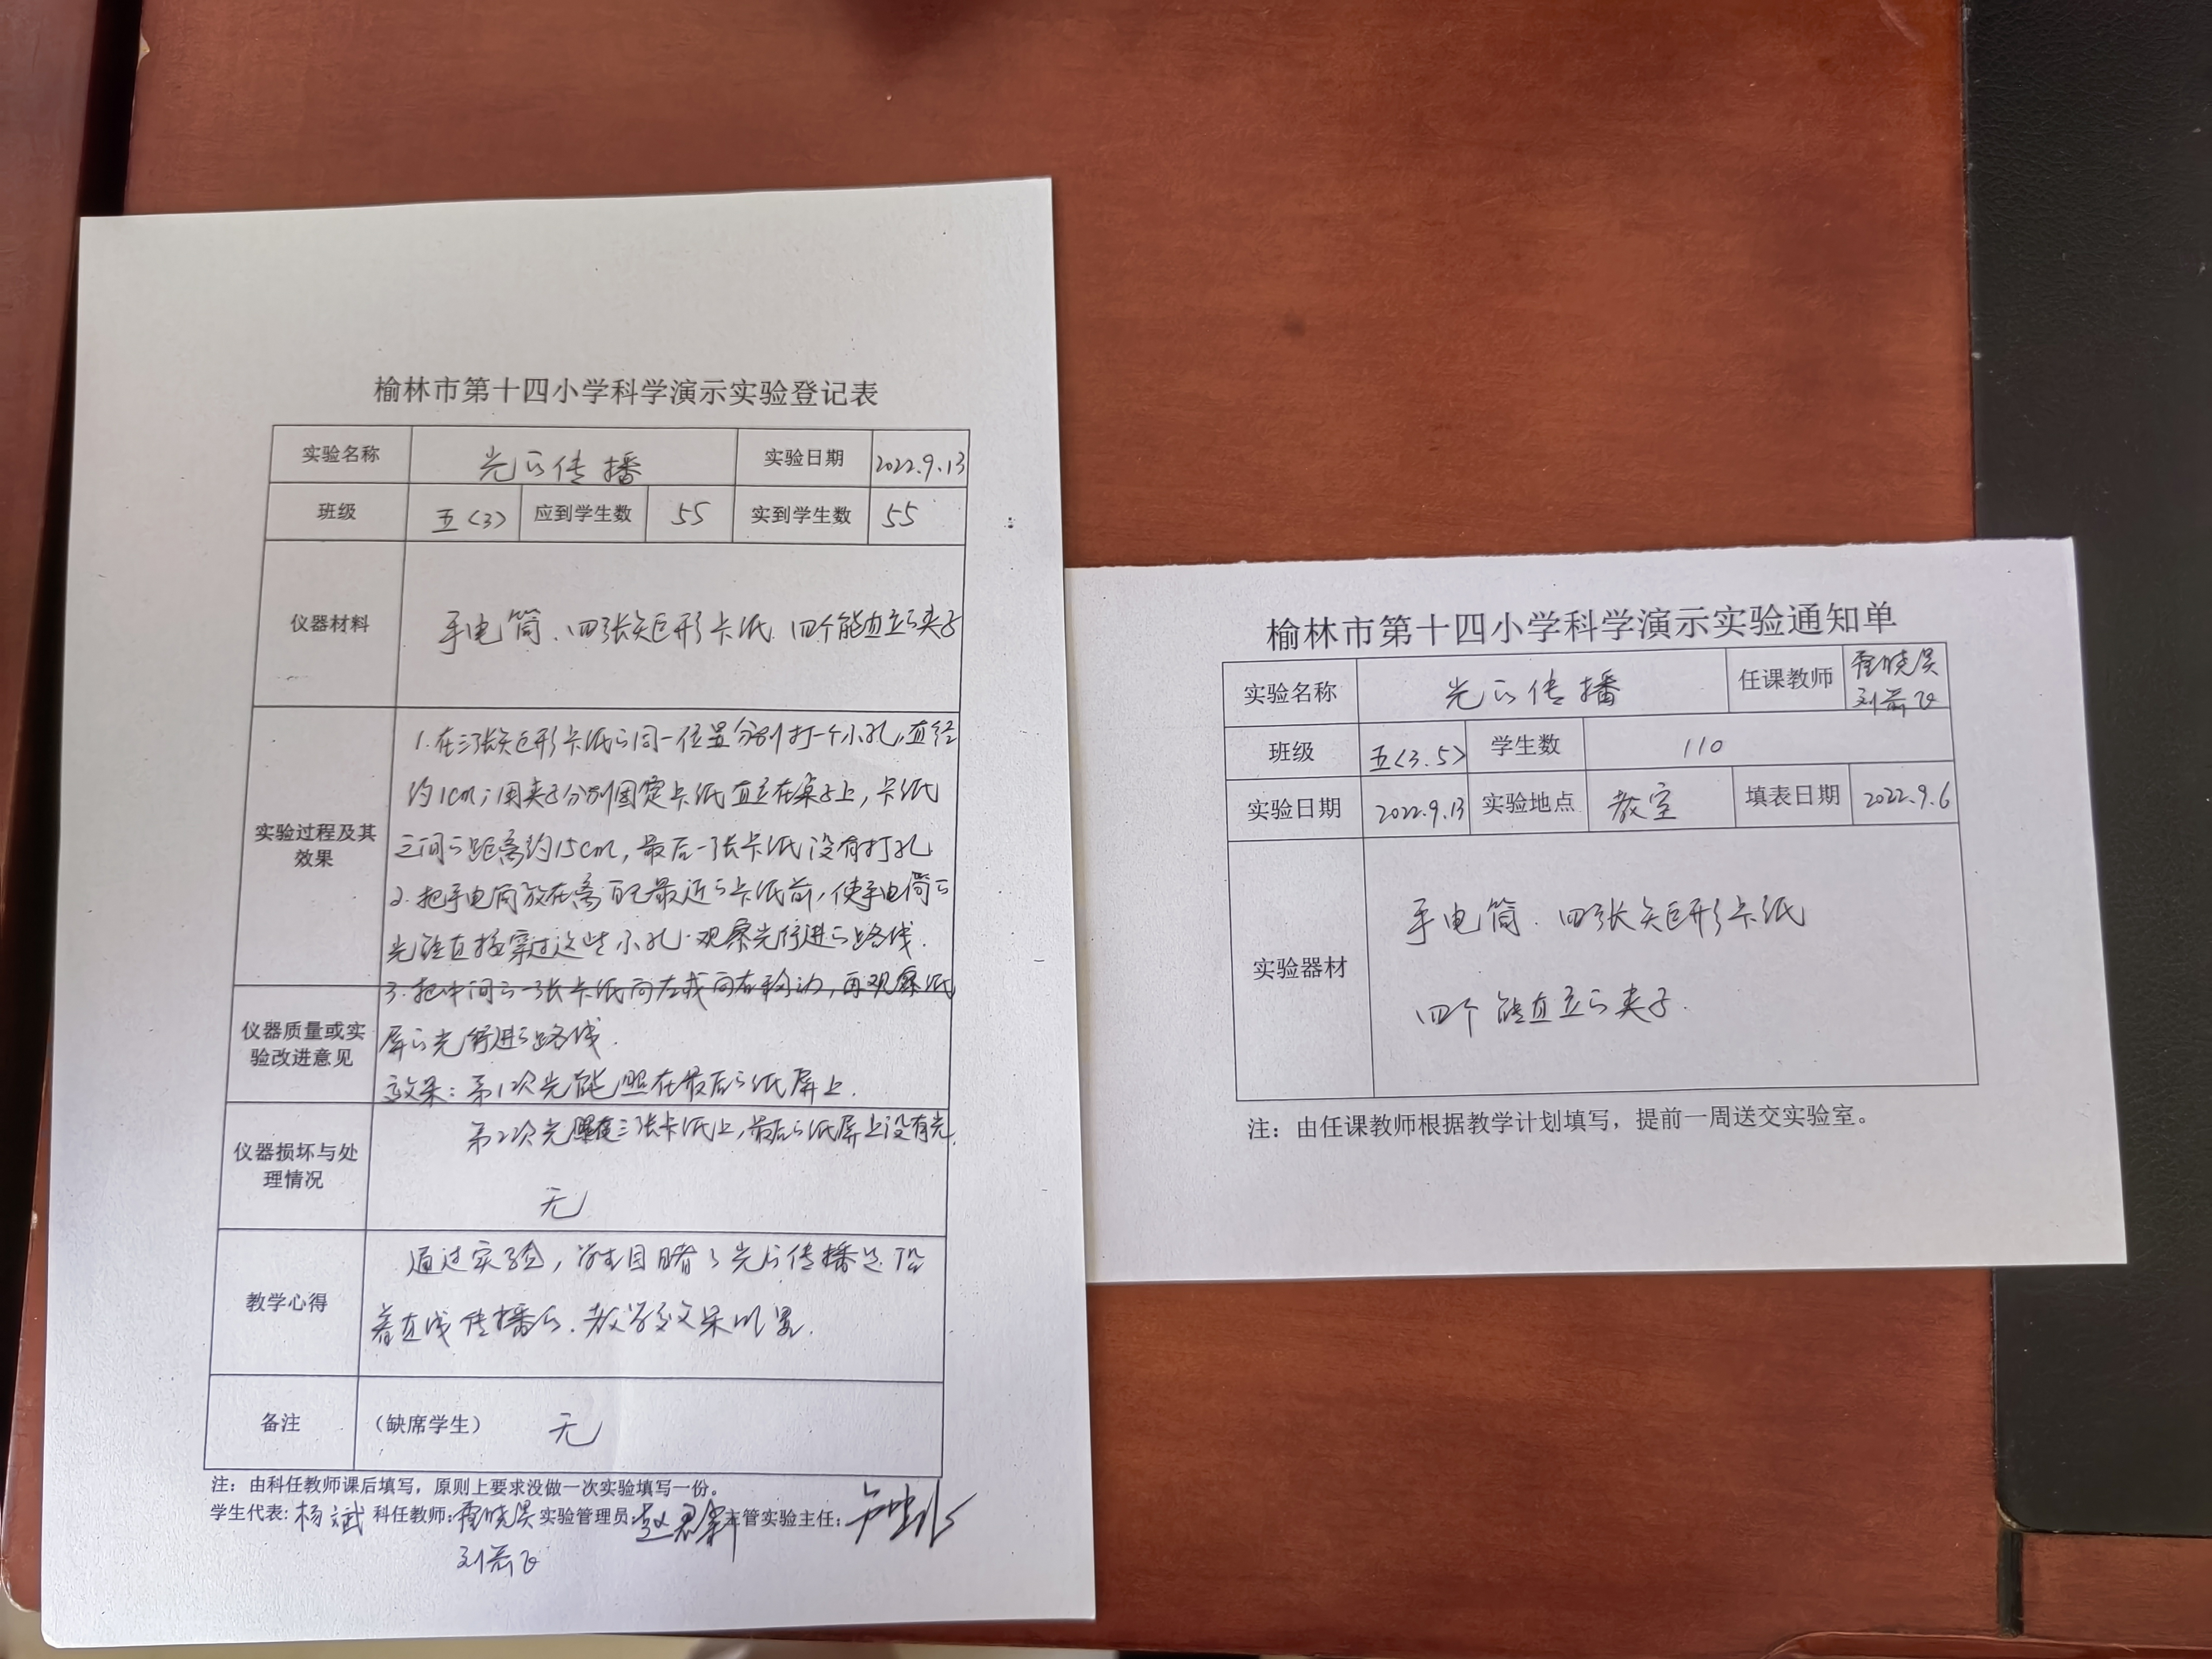 榆林市第十四小学科学演示实验登记表
实验名称 光的传播 实验日期 2022.9.13
班级 五(3) 应到学生数 55 实到学生数 55
仪器材料 手电筒、四张矩形卡纸、四个能直立的夹子
实验过程及其效果
1.在三张矩形卡纸的同一位置分别打一个小孔,直径
约1cm;用夹子分别固定卡纸直立在桌子上,卡纸
之间的距离约15cm,最后一张卡纸没有打孔
2.把手电筒放在离自己最近的卡纸前,使手电筒的
光能直接穿过这些小孔.观察光行进的路线.
3.把中间的一张卡纸向左或向右移动,再观察纸
仪器质量或实验改进意见
屏的光行进的路线.
效果:第1次光能照在最后的纸屏上.
第2次光照在三张卡纸上,最后的纸屏上没有光.
仪器损坏与处理情况 无
教学心得
通过实验,学生目睹了光的传播是沿
着直线传播的.教学效果明显.
备注 (缺席学生) 无
注:由科任教师课后填写,原则上要求没做一次实验填写一份。
学生代表:杨斌 科任教师: 实验管理员: 主管实验主任:
榆林市第十四小学科学演示实验通知单
实验名称 光的传播 任课教师
班级 五(3.5) 学生数 110
实验日期 2022.9.13 实验地点 教室 填表日期 2022.9.6
实验器材
手电筒.四张矩形卡纸
四个能直立的夹子.
注:由任课教师根据教学计划填写,提前一周送交实验室。